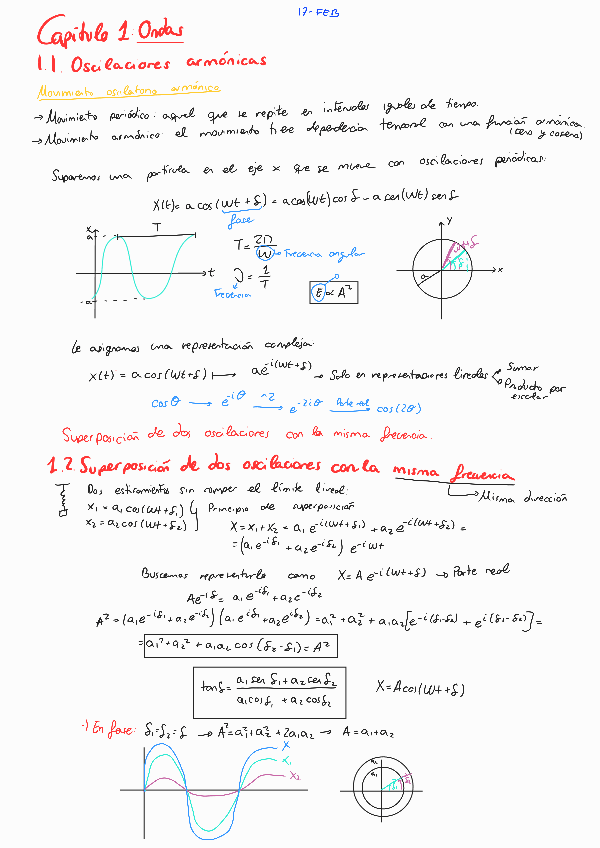 17-FEB
Capítulo 1. Ondas
1.1. Oscilaciones armónicas
Movimiento oscilatorio armónico
→ Movimiento periódico: aquel que se repite en intervalos iguales de tiempo.
→ Movimiento armónico: el movimiento tiene dependencia temporal con una función armónica.
(seno y coseno)
Suponemos una partícula en el eje x que se mueve con oscilaciones periódicas:
X(t) = a cos(ωt + δ) = a cos(ωt) cos δ - a sen(ωt) sen δ
fase
x
a
T
t
-a
T = 2π/ω → Frecuencia angular
ν = 1/T
Frecuencia
E ∝ A²
y
x
a
Le asignamos una representación compleja:
x(t) = a cos(ωt+δ) ↦ ae^-i(ωt+δ) → Solo en representaciones lineales
Sumar
Producto por escalar
cos θ → e^-iθ ^2 → e^-2iθ Parte real → cos(2θ)
Superposición de dos oscilaciones con la misma frecuencia.
1.2. Superposición de dos oscilaciones con la misma frecuencia
→ Misma dirección
Dos estiramientos sin romper el límite lineal:
x₁ = a₁ cos(ωt + δ₁)
x₂ = a₂ cos(ωt + δ₂)
Principio de superposición
X = x₁ + x₂ = a₁ e^-i(ωt+δ₁) + a₂ e^-i(ωt+δ₂) =
= (a₁ e^-iδ₁ + a₂ e^-iδ₂) e^-iωt
Buscamos representarlo como X = A e^-i(ωt+δ) → Parte real
Ae^-iδ = a₁ e^-iδ₁ + a₂ e^-iδ₂
A² = (a₁e^-iδ₁ + a₂e^-iδ₂)(a₁ e^iδ₁ + a₂ e^iδ₂) = a₁² + a₂² + a₁a₂[e^-i(δ₁-δ₂) + e^i(δ₁-δ₂)] =
= a₁² + a₂² + a₁a₂ cos(δ₂ - δ₁) = A²
tan δ = (a₁ sen δ₁ + a₂ sen δ₂)/(a₁ cos δ₁ + a₂ cos δ₂)
X = A cos(ωt + δ)
·) En fase: δ₁ = δ₂ = δ → A² = a₁² + a₂² + 2a₁a₂ → A = a₁ + a₂
X
x₁
x₂
a₂
a₁